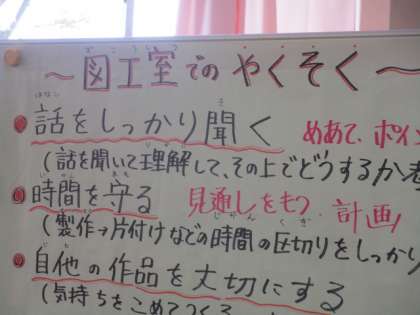 ～図工室でのやくそく～
話をしっかり聞く めあて、ポイン
(話を聞いて理解して、その上でどうするか考
時間を守る 見通しをもつ 計画
(製作→片付けなどの時間の区切りをしっかり
自他の作品を大切にする
(気持ちをこめてつくる